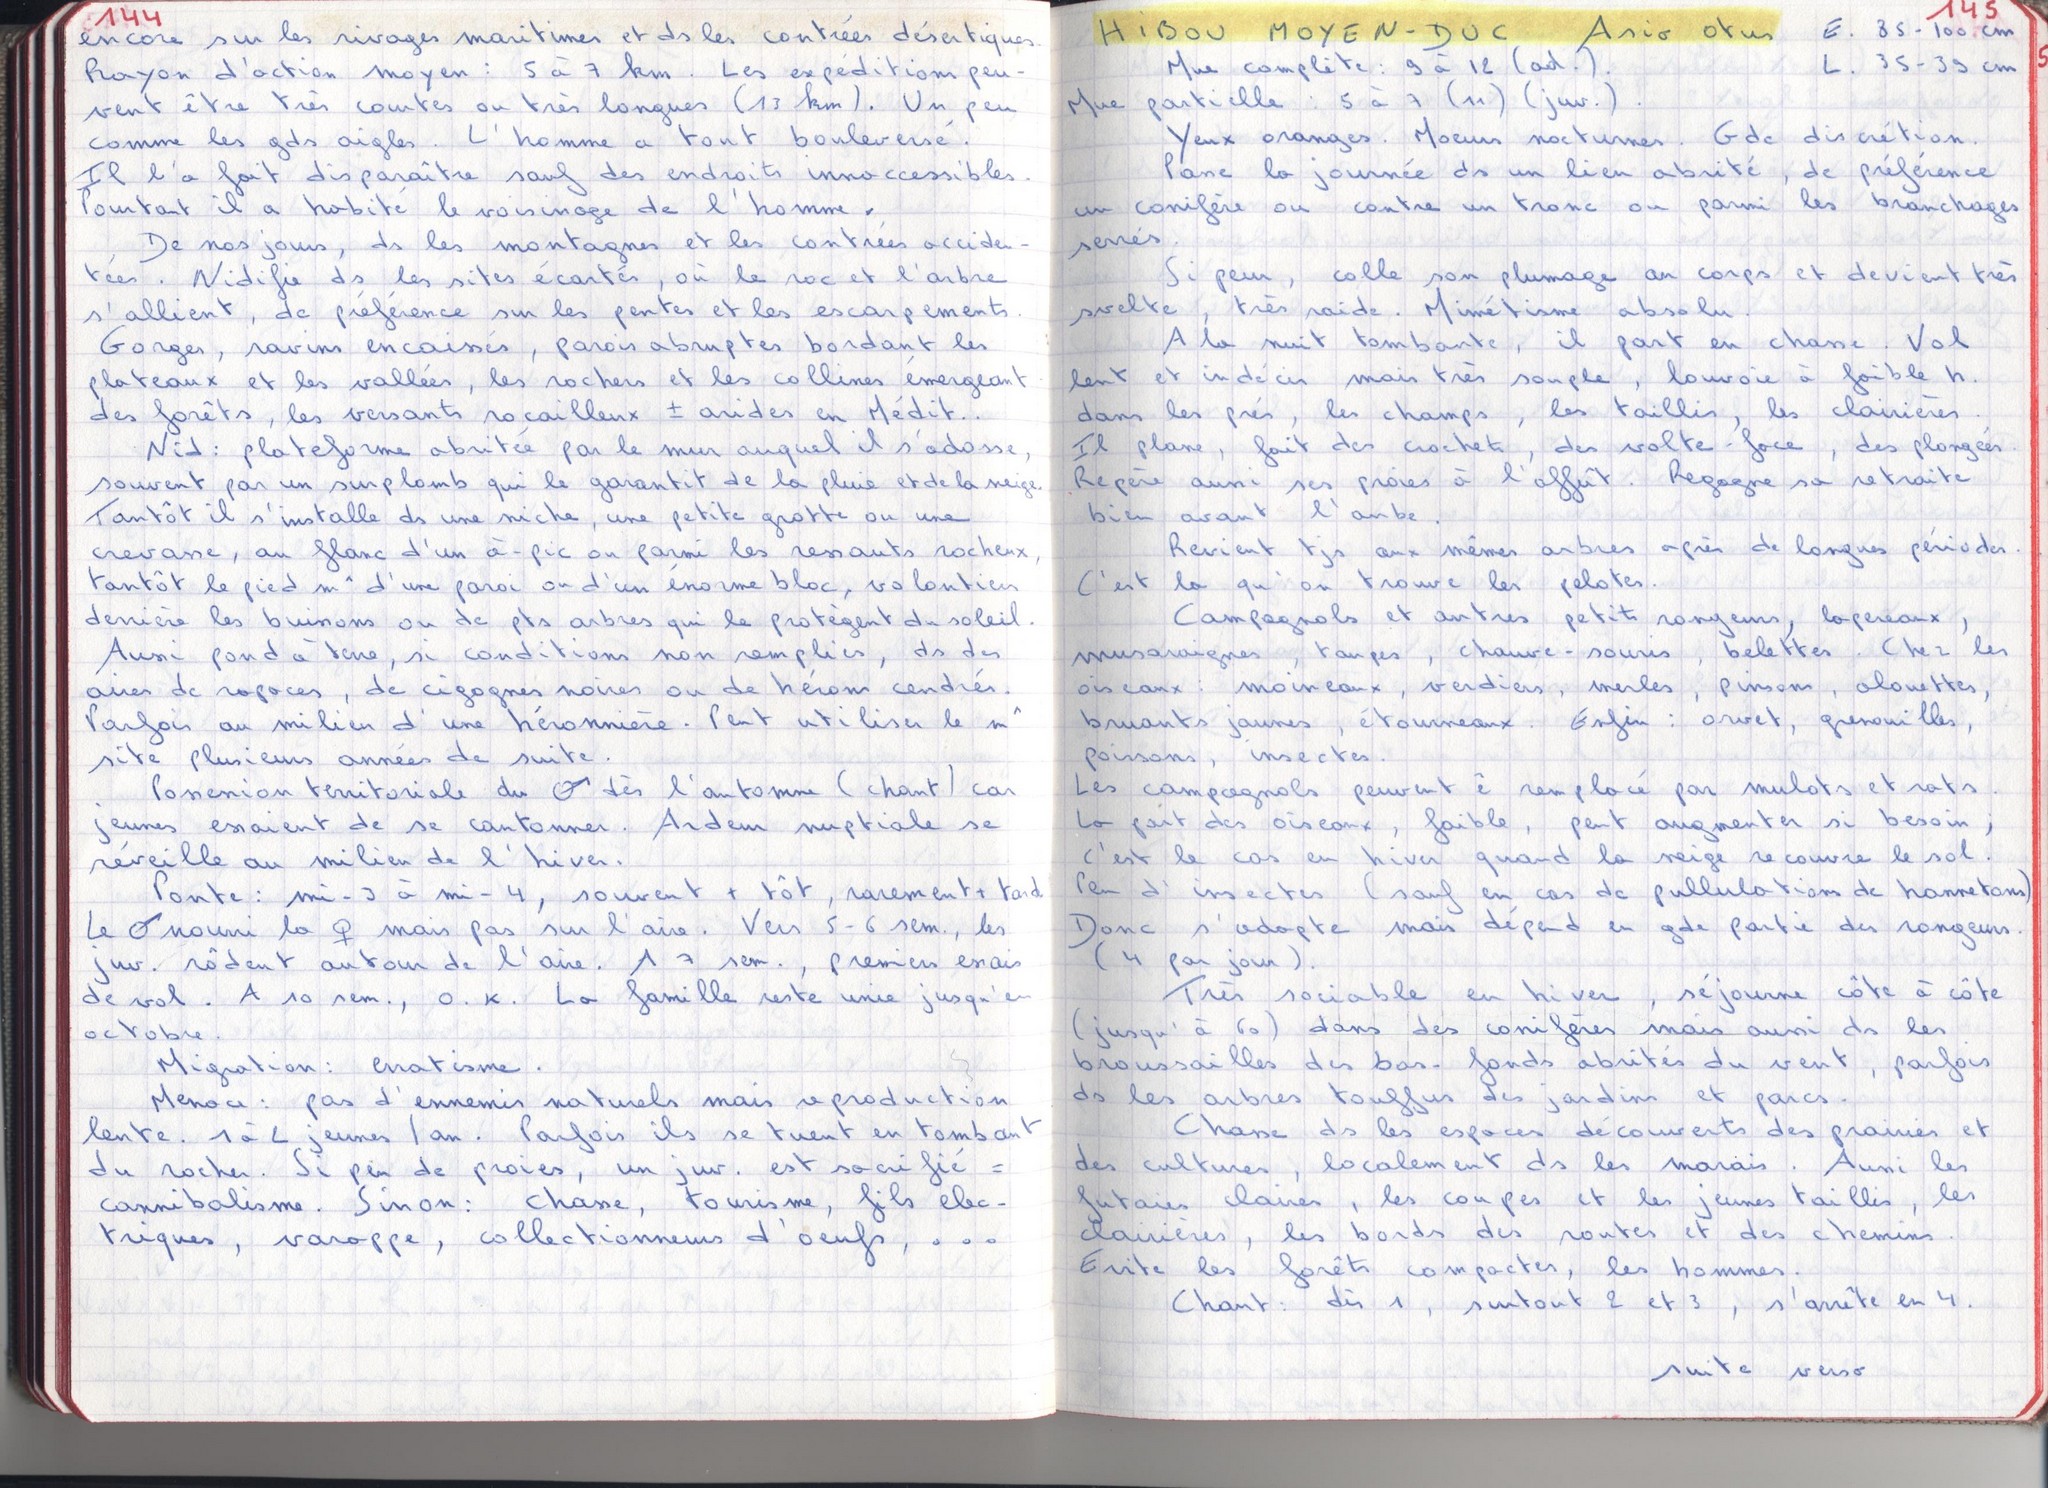 144
encore sur les rivages maritimes et ds les contrées désertiques.
Rayon d'action moyen : 5 à 7 km. Les expéditions peu-
vent être très courtes ou très longues (13 km). Un peu
comme les gds aigles. L'homme a tout bouleversé.
Il l'a fait disparaître sauf des endroits innaccessibles.
Pourtant il a habité le voisinage de l'homme.
De nos jours, ds les montagnes et les contrées acciden-
tées. Nidifie ds les sites écartés, où le roc et l'arbre
s'allient, de préférence sur les pentes et les escarpements.
Gorges, ravins encaissés, parois abruptes bordant les
plateaux et les vallées, les rochers et les collines émergeant
des forêts, les versants rocailleux ± arides en Médit..
Nid : plateforme abritée par le mur auquel il s'adosse,
souvent par un surplomb qui le garantit de la pluie et de la neige.
Tantôt il s'installe ds une niche, une petite grotte ou une
crevasse, au flanc d'un à-pic ou parmi les ressauts rocheux,
tantôt le pied m^ d'une paroi ou d'un énorme bloc, volontiers
derrière les buissons ou de pts arbres qui le protègent du soleil.
Aussi pond à terre, si conditions non remplies, ds des
aires de rapaces, de cigognes noires ou de hérons cendrés.
Parfois au milieu d'une héronnière. Peut utiliser le m^
site plusieurs années de suite.
Possession territoriale du ♂ dès l'automne (chant) car
jeunes essaient de se cantonner. Ardeur nuptiale se
réveille au milieu de l'hiver.
Ponte : mi-3 à mi-4, souvent + tôt, rarement + tard.
Le ♂ nourri la ♀ mais pas sur l'aire. Vers 5-6 sem., les
juv. rôdent autour de l'aire. A 7 sem., premiers essais
de vol. A 10 sem., O.K. La famille reste unie jusqu'en
octobre.
Migration : erratisme.
Menace : pas d'ennemis naturels mais reproduction
lente. 1 à 2 jeunes / an. Parfois ils se tuent en tombant
du rocher. Si peu de proies, un juv. est sacrifié =
cannibalisme. Sinon : chasse, tourisme, fils élec-
triques, varappe, collectionneurs d'oeufs, ...
145
HIBOU MOYEN-DUC Asio otus E. 85-100 cm
Mue complète : 9 à 12 (ad.). L. 35-39 cm
Mue partielle : 5 à 7 (11) (juv.).
Yeux oranges. Moeurs nocturnes. Gde discrétion.
Passe la journée ds un lieu abrité, de préférence
un conifère ou contre un tronc ou parmi les branchages
serrés.
Si peur, colle son plumage au corps et devient très
svelte, très raide. Mimétisme absolu.
A la nuit tombante, il part en chasse. Vol
lent et indécis mais très souple, louvoie à faible h.
dans les prés, les champs, les taillis, les clairières.
Il plane, fait des crochets, des volte-face, des plongées.
Repère aussi ses proies à l'affût. Regagne sa retraite
bien avant l'aube.
Revient tjs aux mêmes arbres après de longues périodes.
C'est la qu'on trouve les pelotes.
Campagnols et autres petits rongeurs, lapereaux,
musaraignes, taupes, chauve-souris, belettes. Chez les
oiseaux : moineaux, verdiers, merles, pinsons, alouettes,
bruants jaunes, étourneaux. Enfin : orvet, grenouilles,
poissons, insectes.
Les campagnols peuvent ê remplacé par mulots et rats.
La part des oiseaux, faible, peut augmenter si besoin ;
c'est le cas en hiver quand la neige recouvre le sol.
Peu d'insectes (sauf en cas de pullulations de hannetons)
Donc s'adapte mais dépend en gde partie des rongeurs.
(4 par jour).
Très sociable en hiver, séjourne côte à côte
(jusqu'à 60) dans des conifères mais aussi ds les
broussailles des bas-fonds abrités du vent, parfois
ds les arbres touffus des jardins et parcs.
Chasse ds les espaces découverts des prairies et
des cultures, localement ds les marais. Aussi les
futaies claires, les coupes et les jeunes taillis, les
clairières, les bords des routes et des chemins.
Evite les forêts compactes, les hommes.
Chant : dès 1, surtout 2 et 3, s'arrête en 4.
suite verso